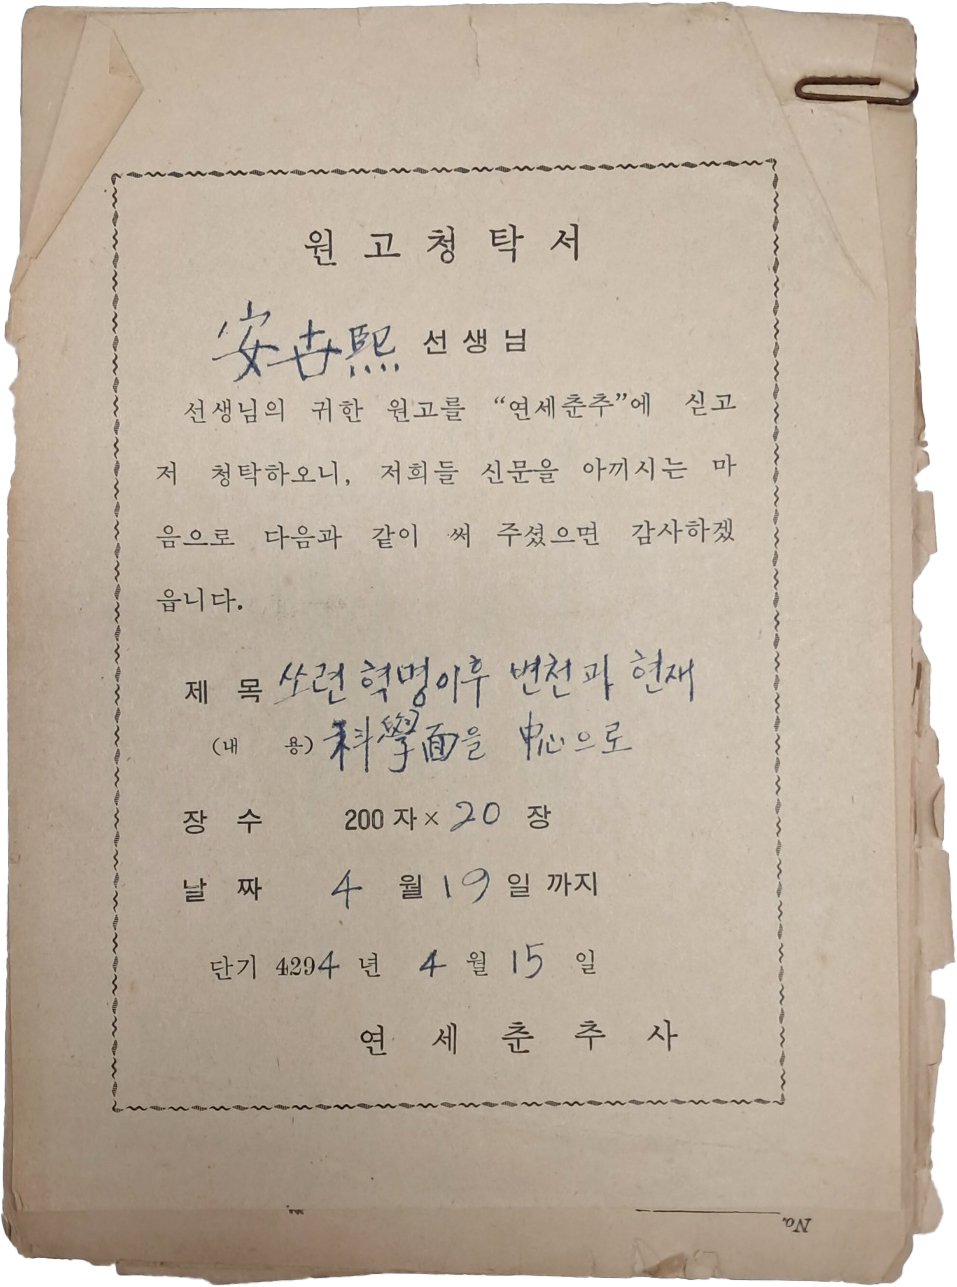 원고청탁서
安世熙 선생님
선생님의 귀한 원고를 “연세춘추”에 싣고
저 청탁하오니, 저희들 신문을 아끼시는 마
음으로 다음과 같이 써 주셨으면 감사하겠
읍니다.
제 목 쏘련 혁명이후 변천과 현재
(내 용) 科學面을 中心으로
장 수 200 자× 20 장
날 짜 4 월 19 일 까지
단기 4294 년 4 월 15 일
연 세 춘 추 사
No.